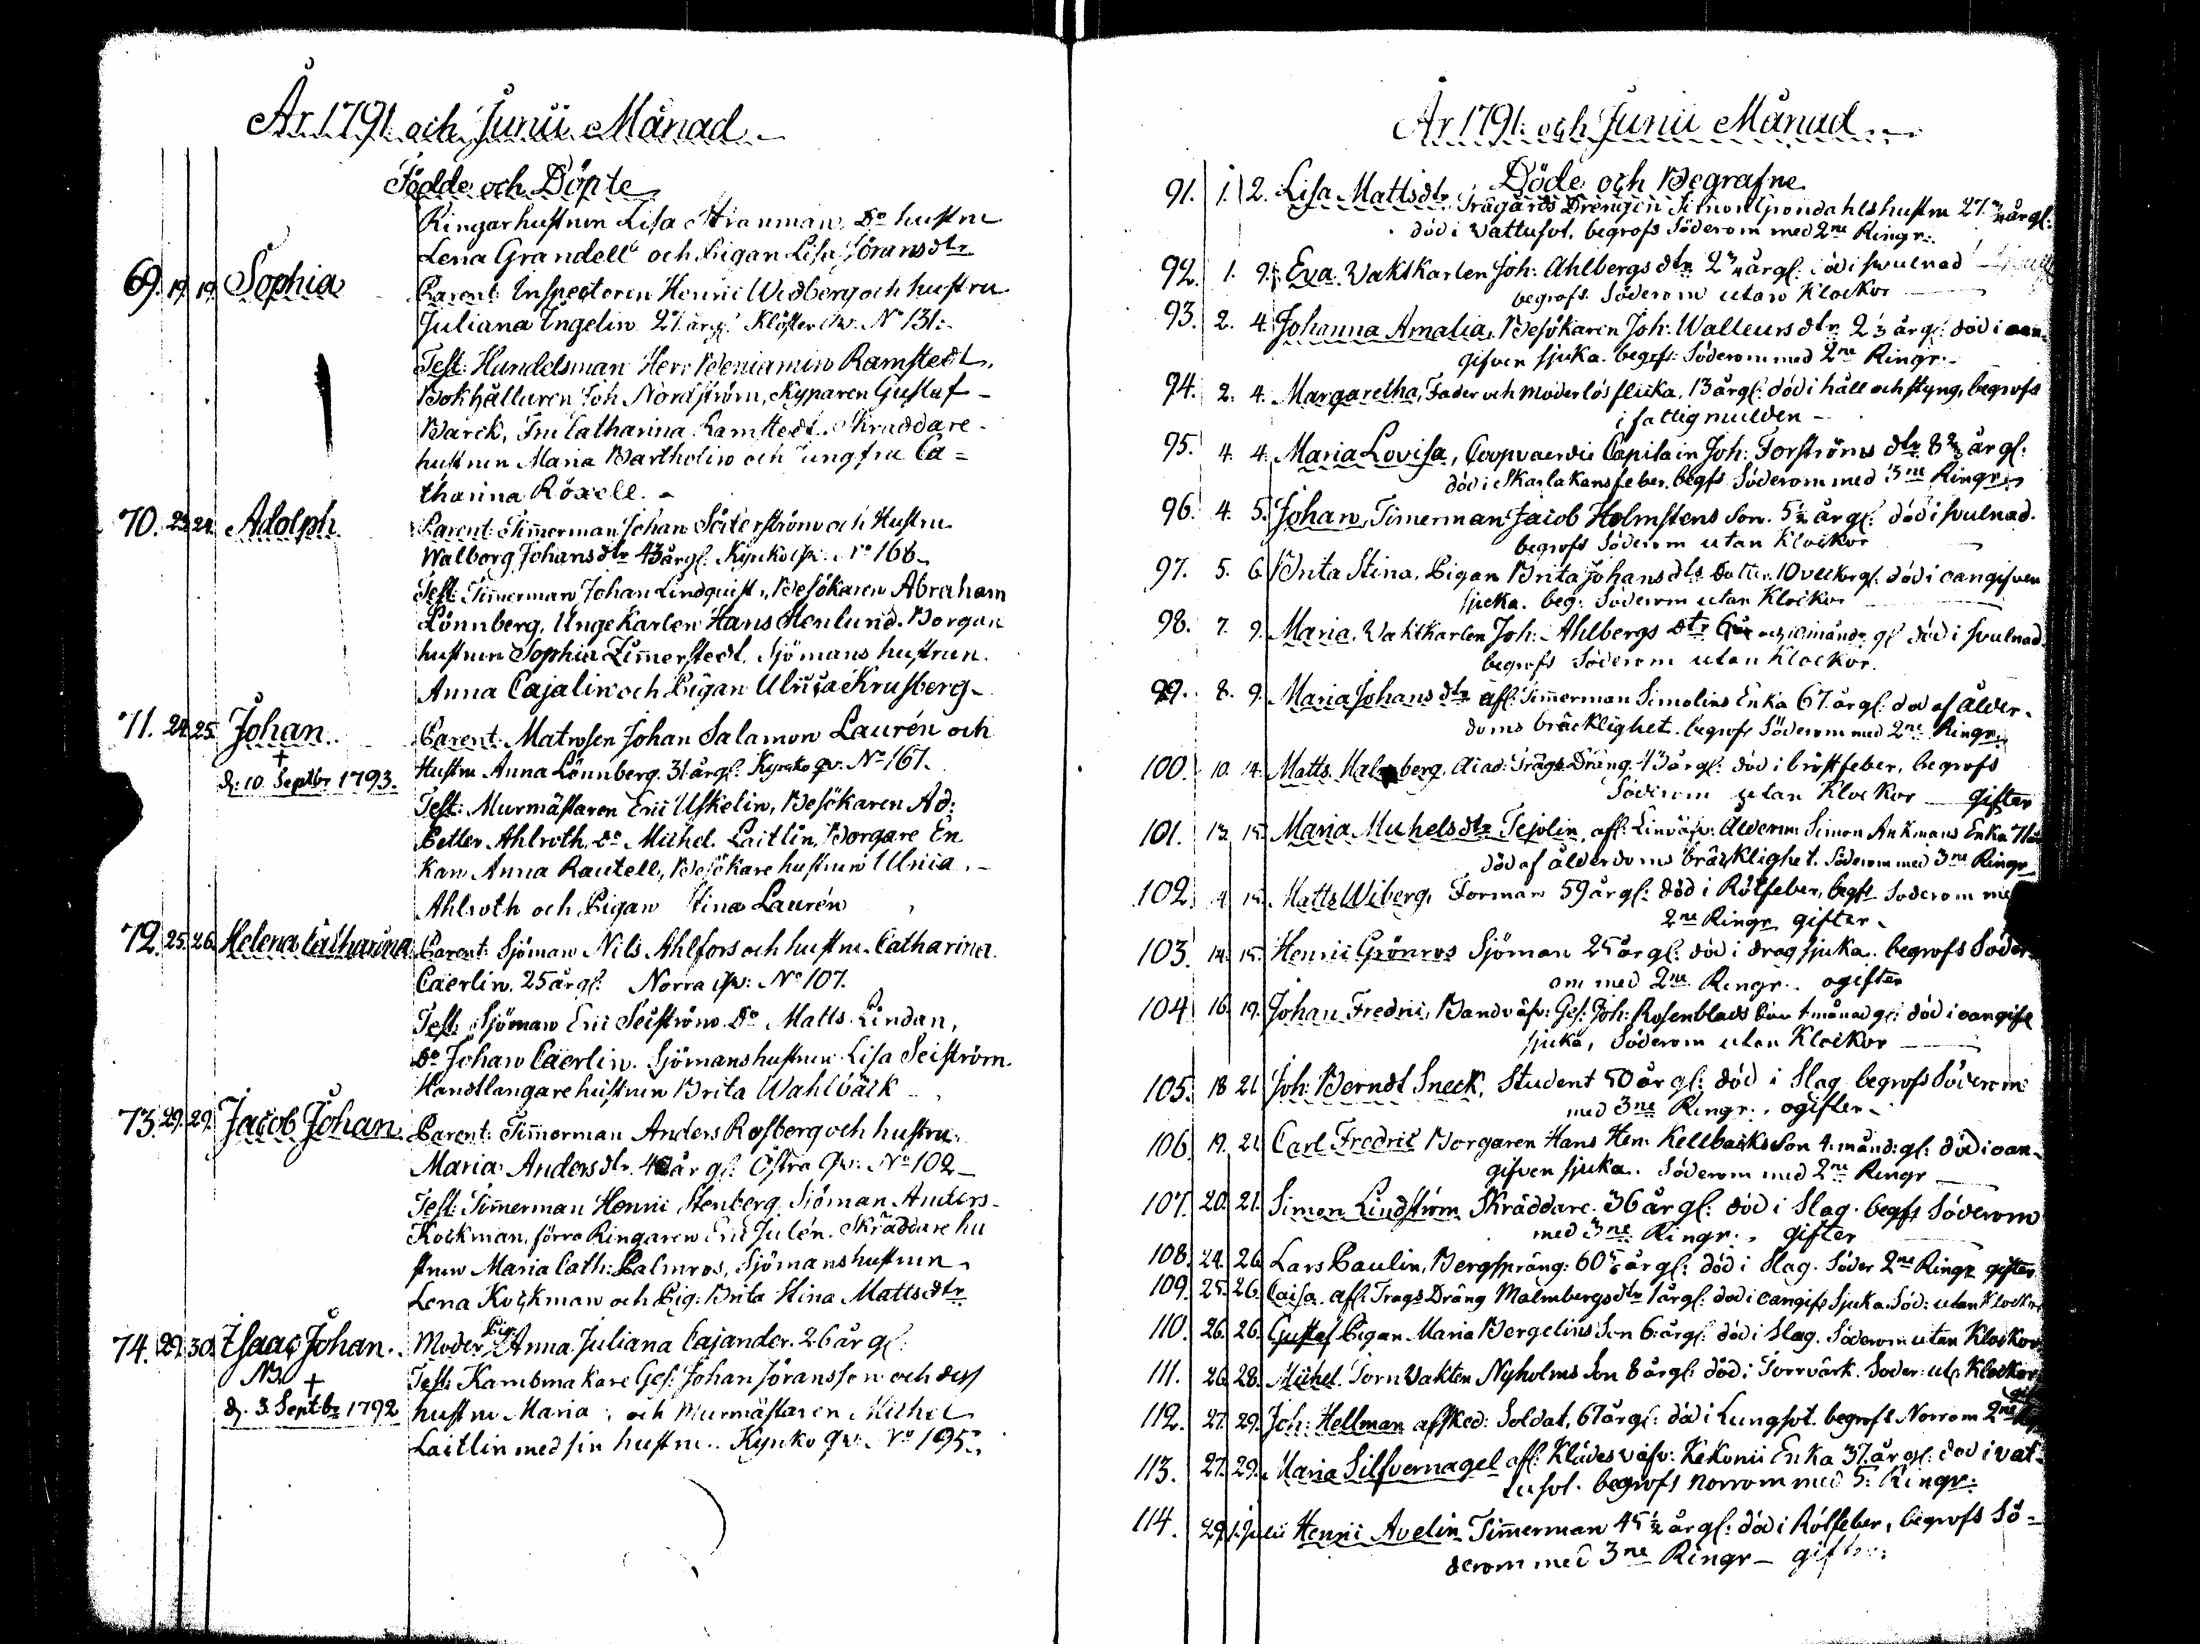 År 1791 och Junii Månad
Födde och Döpte
Ringarhustrun Lisa Stranman, Do hustru
Lena Grandell och Pigan Lisa Jöransdtr
69. 19 19 Sophia Parent: Inspectoren Henric Widberg och hustru
Juliana Ingelin 27 årgl: Klöster qv: No 131:
Test: Handelsman Herr Beniamin Ramstedt,
Bokhållaren Joh Nordström, Kyparen Gustaf
Barck, Fru Catharina Ramstedt, Skräddare
hustrun Maria Bartholin och Jungfru Ca=
tharina Röxell.
70. 23 24. Adolph Parent: Timmerman Johan Söderström och Hustru
Walborg Johansdtr 43 årgl. Kyrko qv: No 166
Test: Timmerman Johan Lindquist, Besökaren Abraham
Lönnberg, Unge Karlen Hans Stenlund, Borgare
hustrun Sophia Zimmerstedt, Sjömans hustrun
Anna Cajalin och Pigan Ulrica Krusberg
71. 24 25. Johan Parent. Matrosen Johan Salamon Laurén och
Hustru Anna Lönnberg. 31 årgl: Kyrko qv: No 161.
† d: 10 Septbr 1793.
Test: Murmästaren Eric Uskelin, Besökaren Ad:
Petter Ahlroth, Do Michel Laitlin, Borgare En
kan Anna Rautell, Besökare hustrun Ulrica
Ahlroth och Pigan Stina Laurén
72. 25. 26. Helena Catharina Parent: Sjöman Nils Ahlfors och hustru Catharina
Caerlin. 25 årgl: Norra qv: No 107.
Test: Sjöman Eric Seiström Do Matts Lindan,
Do Johan Caerlin. Sjömanshustrun Lisa Seiström
Handtlangarehustrun Brita Wahlbäck
73. 29. 29. Jacob Johan Parent: Timmerman Anders Rosberg och hustru
Maria Andersdtr. 40 år gl: Östra qv: No 102
Test: Timmerman Henric Stenberg, Sjöman Anders
Kockman, förra Ringaren Eric Julén. Skräddare hu
strun Maria Cath: Palmros, Sjömanshustrun
Lena Kockman och Pig: Brita Stina Mattsdtr
74. 29. 30. Isaac Johan. Moder Pig: Anna Juliana Cajander. 26 år gl:
NB †
Test: Kambmakare Ges: Johan Jöransson och dess
d. 3. Septbr 1792 hustru Maria, och Murmästaren Michel
Laitlin med sin hustru. Kyrko qv: No 195.
År 1791: och Junii Månad
Döde och Begrafne
91. 1. 2. Lisa Mattsdtr Trägårds Drengen Simon Grondahls hustru 27 årgl:
död i Vattusot. begrofs Söderom med 2ne Ringr:
92. 1. 9. Eva. Vaktkarlen Joh: Ahlbergs dtr 2 årgl: död i svulnad
begrofs Söderom utan Klockor
93. 2. 4. Johanna Amalia, Besökaren Joh: Walleurs dtr 2 1/3 årgl: död i oan
gifven sjuka. begrfs: Söderom med 2ne Ringr:
94. 2. 4. Margaretha, Fader och Moderlös flicka, 13 årgl: död i håll och styng, begrofs
i fattigmulden
95. 4. 4. Maria Lovisa, Coopvaerdie Capitain Joh: Forströms dtr 8 2/3 år gl:
död i Skarlakansfeber. begfs Söderom med 3ne Ringr.
96. 4. 5. Johan, Timerman Jacob Holmstens Son. 5 1/2 år gl: död i svulnad.
begrofs Söderom utan Klockor
97. 5. 6. Brita Stina, Pigan Brita Johansdts Dotter. 10 veckor gl. död i oangifven
sjuka. beg: Söderom utan Klockor
98. 7. 9. Maria. Vaktkarlen Joh: Ahlbergs dtr 6 år och 10 månadr gl död i svulnad.
begrofs Söderom utan Klockor.
99. 8. 9. Maria Johansdtr afl: Timmerman Simolins Enka 67 år gl: död af ålder-
doms bräcklighet. begrofs Söderom med 2ne Ringr.
100. 10. 14. Matts Malmberg, Acad: Trägs Dräng. 43 år gl: död i bröstfeber, begrofs
Söderom utan Klockor gifter
101. 13. 15. Maria Michelsdtr Tejolin, afl: Linväfv: Ålderm: Simon Ankmans Enka
död af ålderdoms bräcklighet. Söderom med 3ne Ringr
102. 15. Matts Wiberg, Forman 59 årgl: död i Rötfeber, begfs Söderom med
2ne Ringr gifter
103. 14. 15. Henric Grönros Sjöman 25 år gl: död i dragsjuka. begrofs Söder
om med 2ne Ringr. ogifter
104 16. 19. Johan Fredric, Bandväfv: Ges: Joh: Rosenblads månad gl: död i oangifv
sjuka, Söderom utan Klockor
105. 18 21 Joh: Berndt Sneck, Student 50 år gl: död i Slag begrofs Söderom
med 3ne Ringr., ogifter
106 19. 21. Carl Fredric Borgaren Hans Hen: Kellbacks Son 4: månd: gl: död i oan-
gifven sjuka. Söderom med 2ne Ringr
107. 20. 21. Simon Lindström Skräddare. 36 år gl: död i Slag. begfs Söderom
med 3ne Ringr., gifter
108. 24. 26. Lars Paulin, Bergspräng: 60 årgl: död i Slag. Söder 2ne Ringr gifter
109. 25. 26. Caisa afl: Trägs Dräng Malmbergs dtr 1 årgl: död i oangifv Sjuka Söd: utan Klockr
110. 26. 26. Gustaf Pigan Maria Bergelins Son 6: årgl: död i Slag. Söderom utan Klockor
111. 26. 28. Michel. Tornvakten Nyholms Son 8 årgl: död i Torrvärk. Söder: ut: Klockor
112. 27. 29. Joh: Hellman afsked: Soldat, 67 årgl: död i Lungsot. begrofs Norrom 2ne
113. 27. 29. Maria Silfvernagel afl: Klädesväfv: Kekonii Enka 37 år gl: död i vat-
tusot. begrofs norrom med 5: Ringr:
114. 29. 1. Julii Henric Avelin Timmerman 45 1/2 årgl: död i Rötfeber, begrofs Sö-
derom med 3ne Ringr gifter